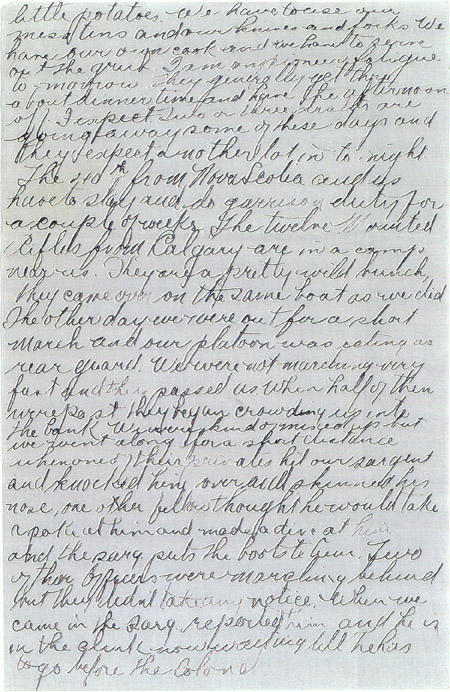 little potatoes. We have to use our
mess tins and our knives and forks. We
have our own cook and we have to serve
out the grub. I am on fatigue
to-morrow. They generally get through
about dinner time and have the afternoon
off. I expect two or three drafts are
going away some of these days and
they expect another lot in to-night
The 40th from Nova Scotia and us
have to stay and do garrison duty for
a couple of weeks. The twelve Mounted
Rifles from Calgary are in a camp
near us. They are a pretty wild bunch,
they came over on the same boat as we did
The other day we were out for a short
march and our platoon was acting as
rear guard. We were not marching very
fast and they passed us when half of them
were past they began crowding us into
the bank. We were kind of mixed up but
we went along for a short distance
when one of their privates hit our sargent
and knocked him over and skinned his
nose, one other fellow thought he would take
a poke at him and made a dive at him
and the sarg. puts the boots to him. Two
of their officers were marching behind
but they didnt take any notice. When we
came in the sarg. reported him and he is
in the clink now waiting till he has
to go before the Colonel